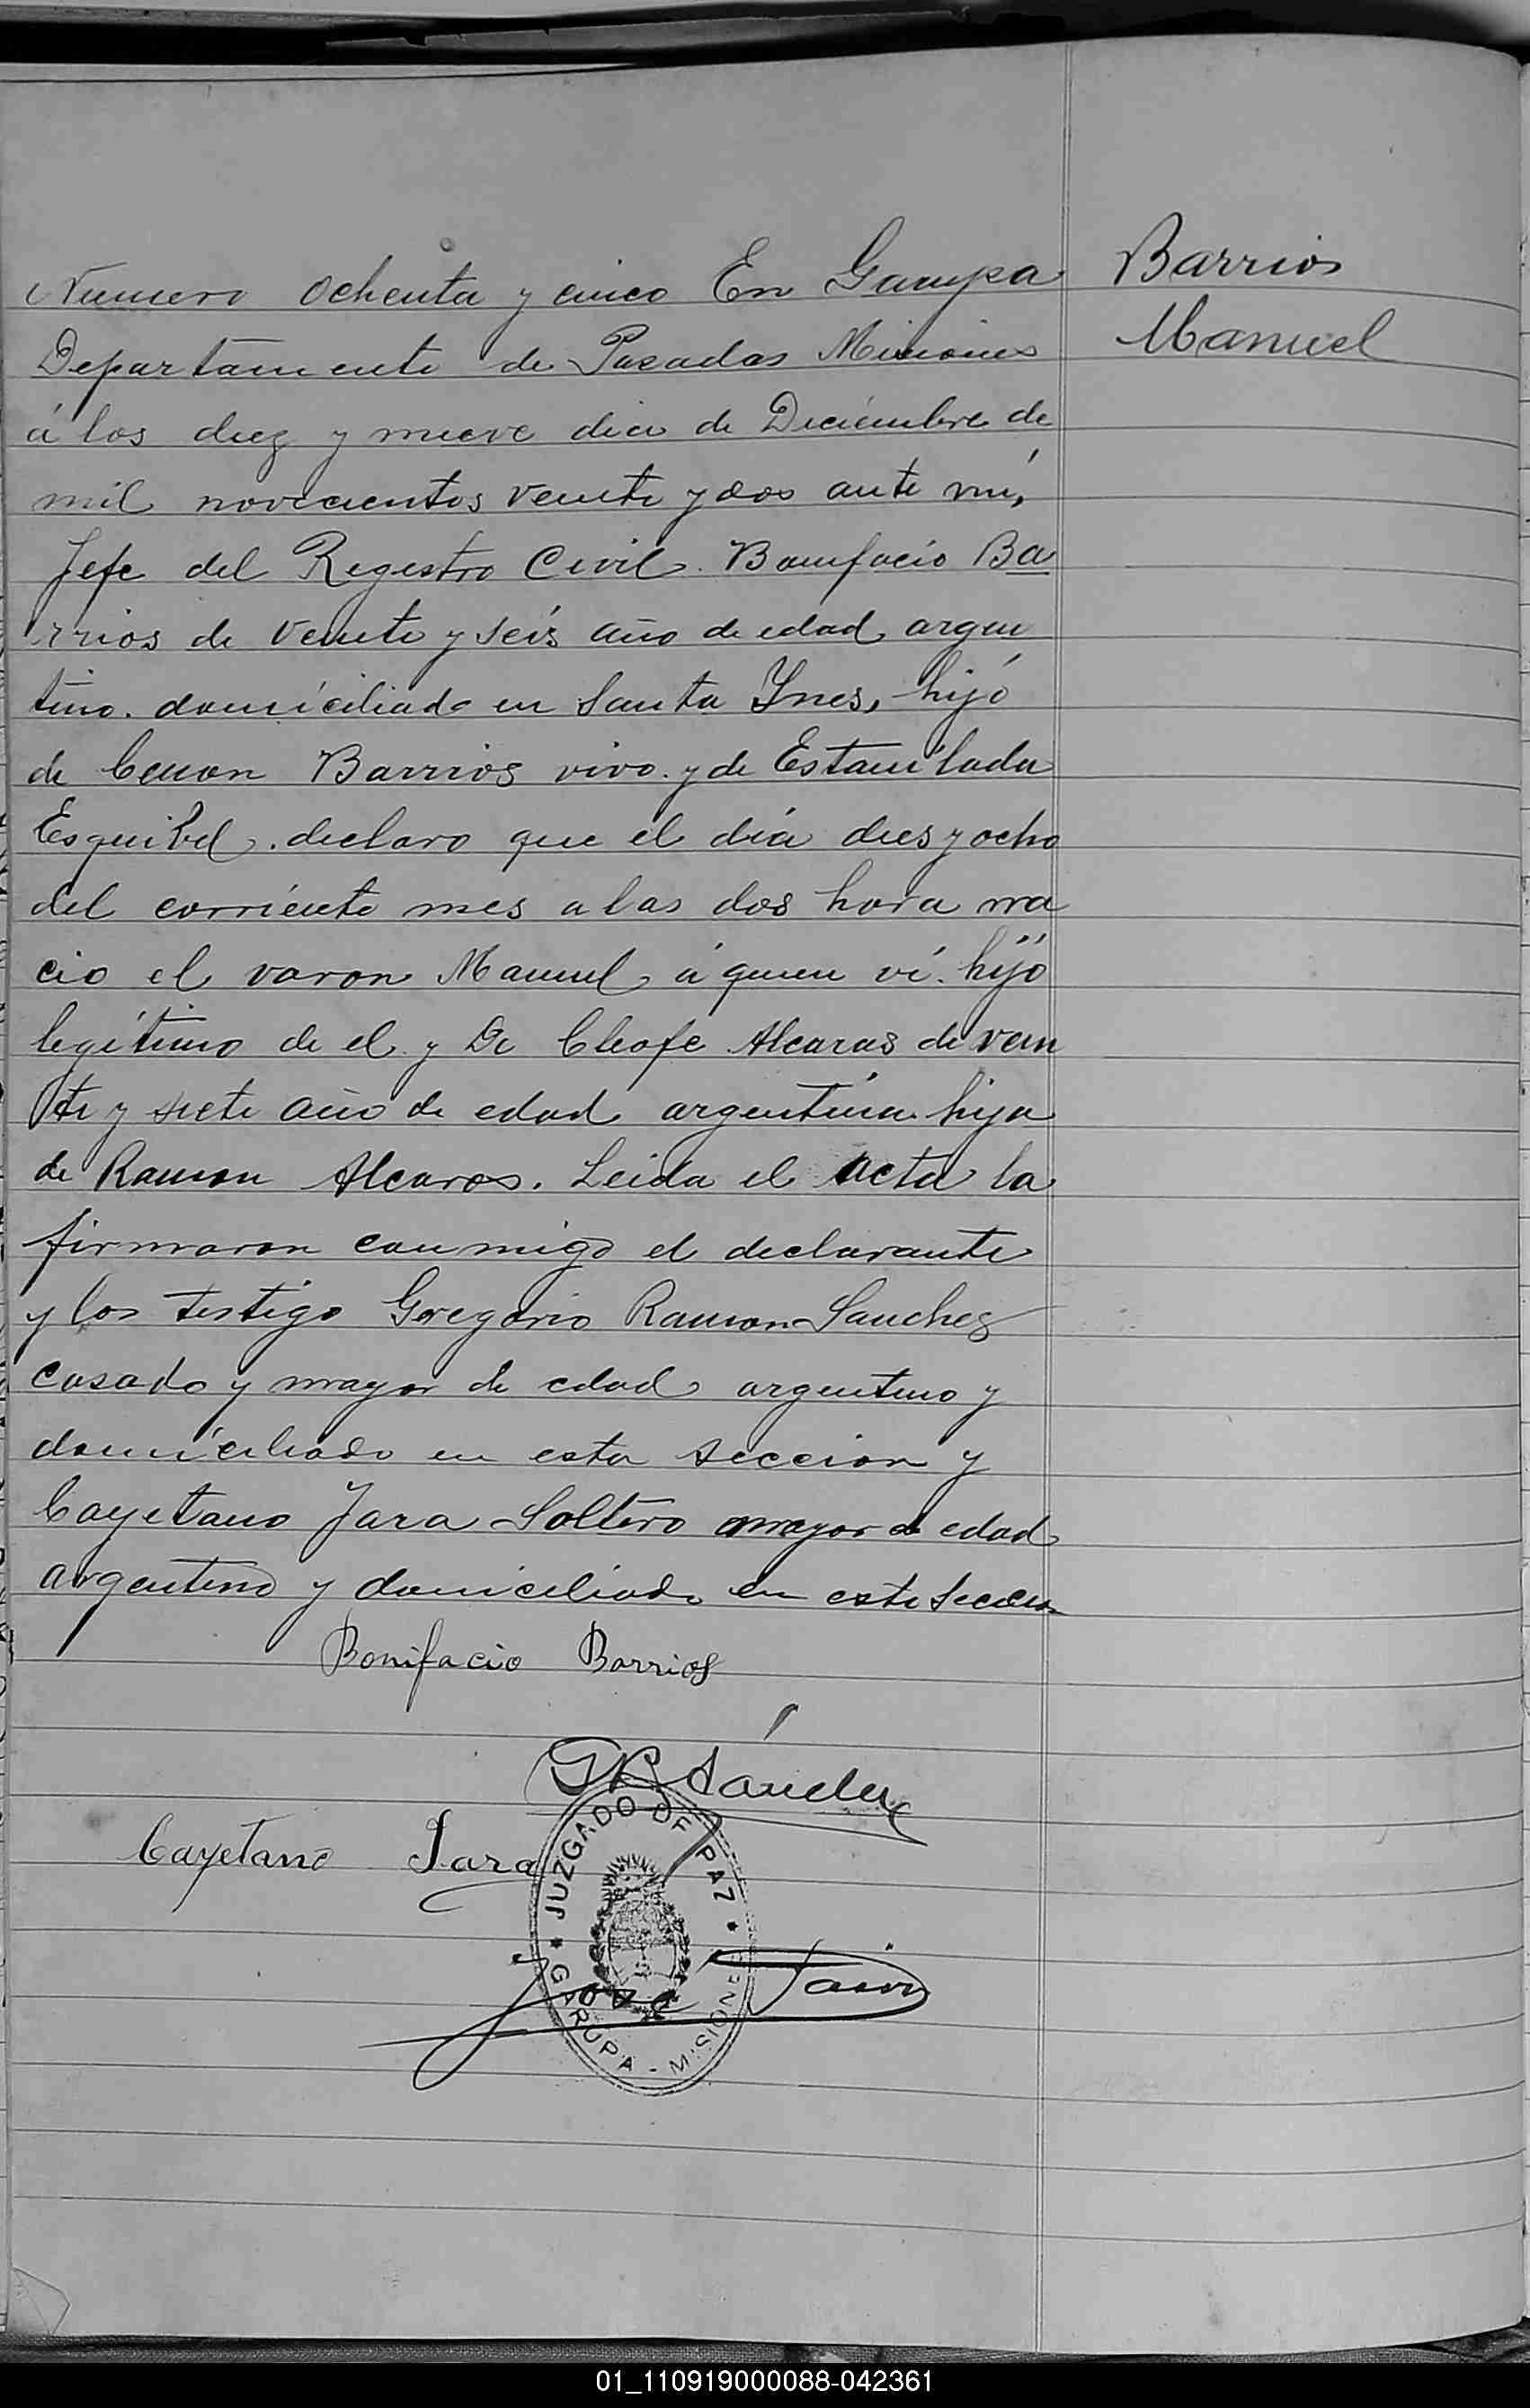 Barrios
Manuel
Numero ochenta y cinco En Garupa
Departamento de Posadas Misiones
á los diez y nueve dia de Diciémbre de
mil novecientos veinte y dos ante mí,
Jefe del Registro Civil. Bonifacio Ba
rrios de veinte y seis año de edad argen
tino. domiciliado en Santa Ynes, hijo
de Cenon Barrios vivo. y de Estanilada
Esquibel. declaro que el día dies y ocho
del corriénte mes a las dos hora na
cio el varon Manuel á quien ví. hijo
legítimo de el y De Cleofe Alcaras de vein
te y siete año de edad argentina hija
de Ramon Alcaras. Leida el acta la
firmaron conmigo el declarante
y los testigo Gregorio Ramon Sanchez
casado y mayor de edad argentino y
domiciliado en esta seccion y
Cayetano Jara Soltero mayor de edad
argentino y domiciliado en este seccion
Bonifacio Barrios
G R Sánchez
Cayetano Jara
JUZGADO DE PAZ
GARUPA - MISIONES
José
01_110919000088-042361